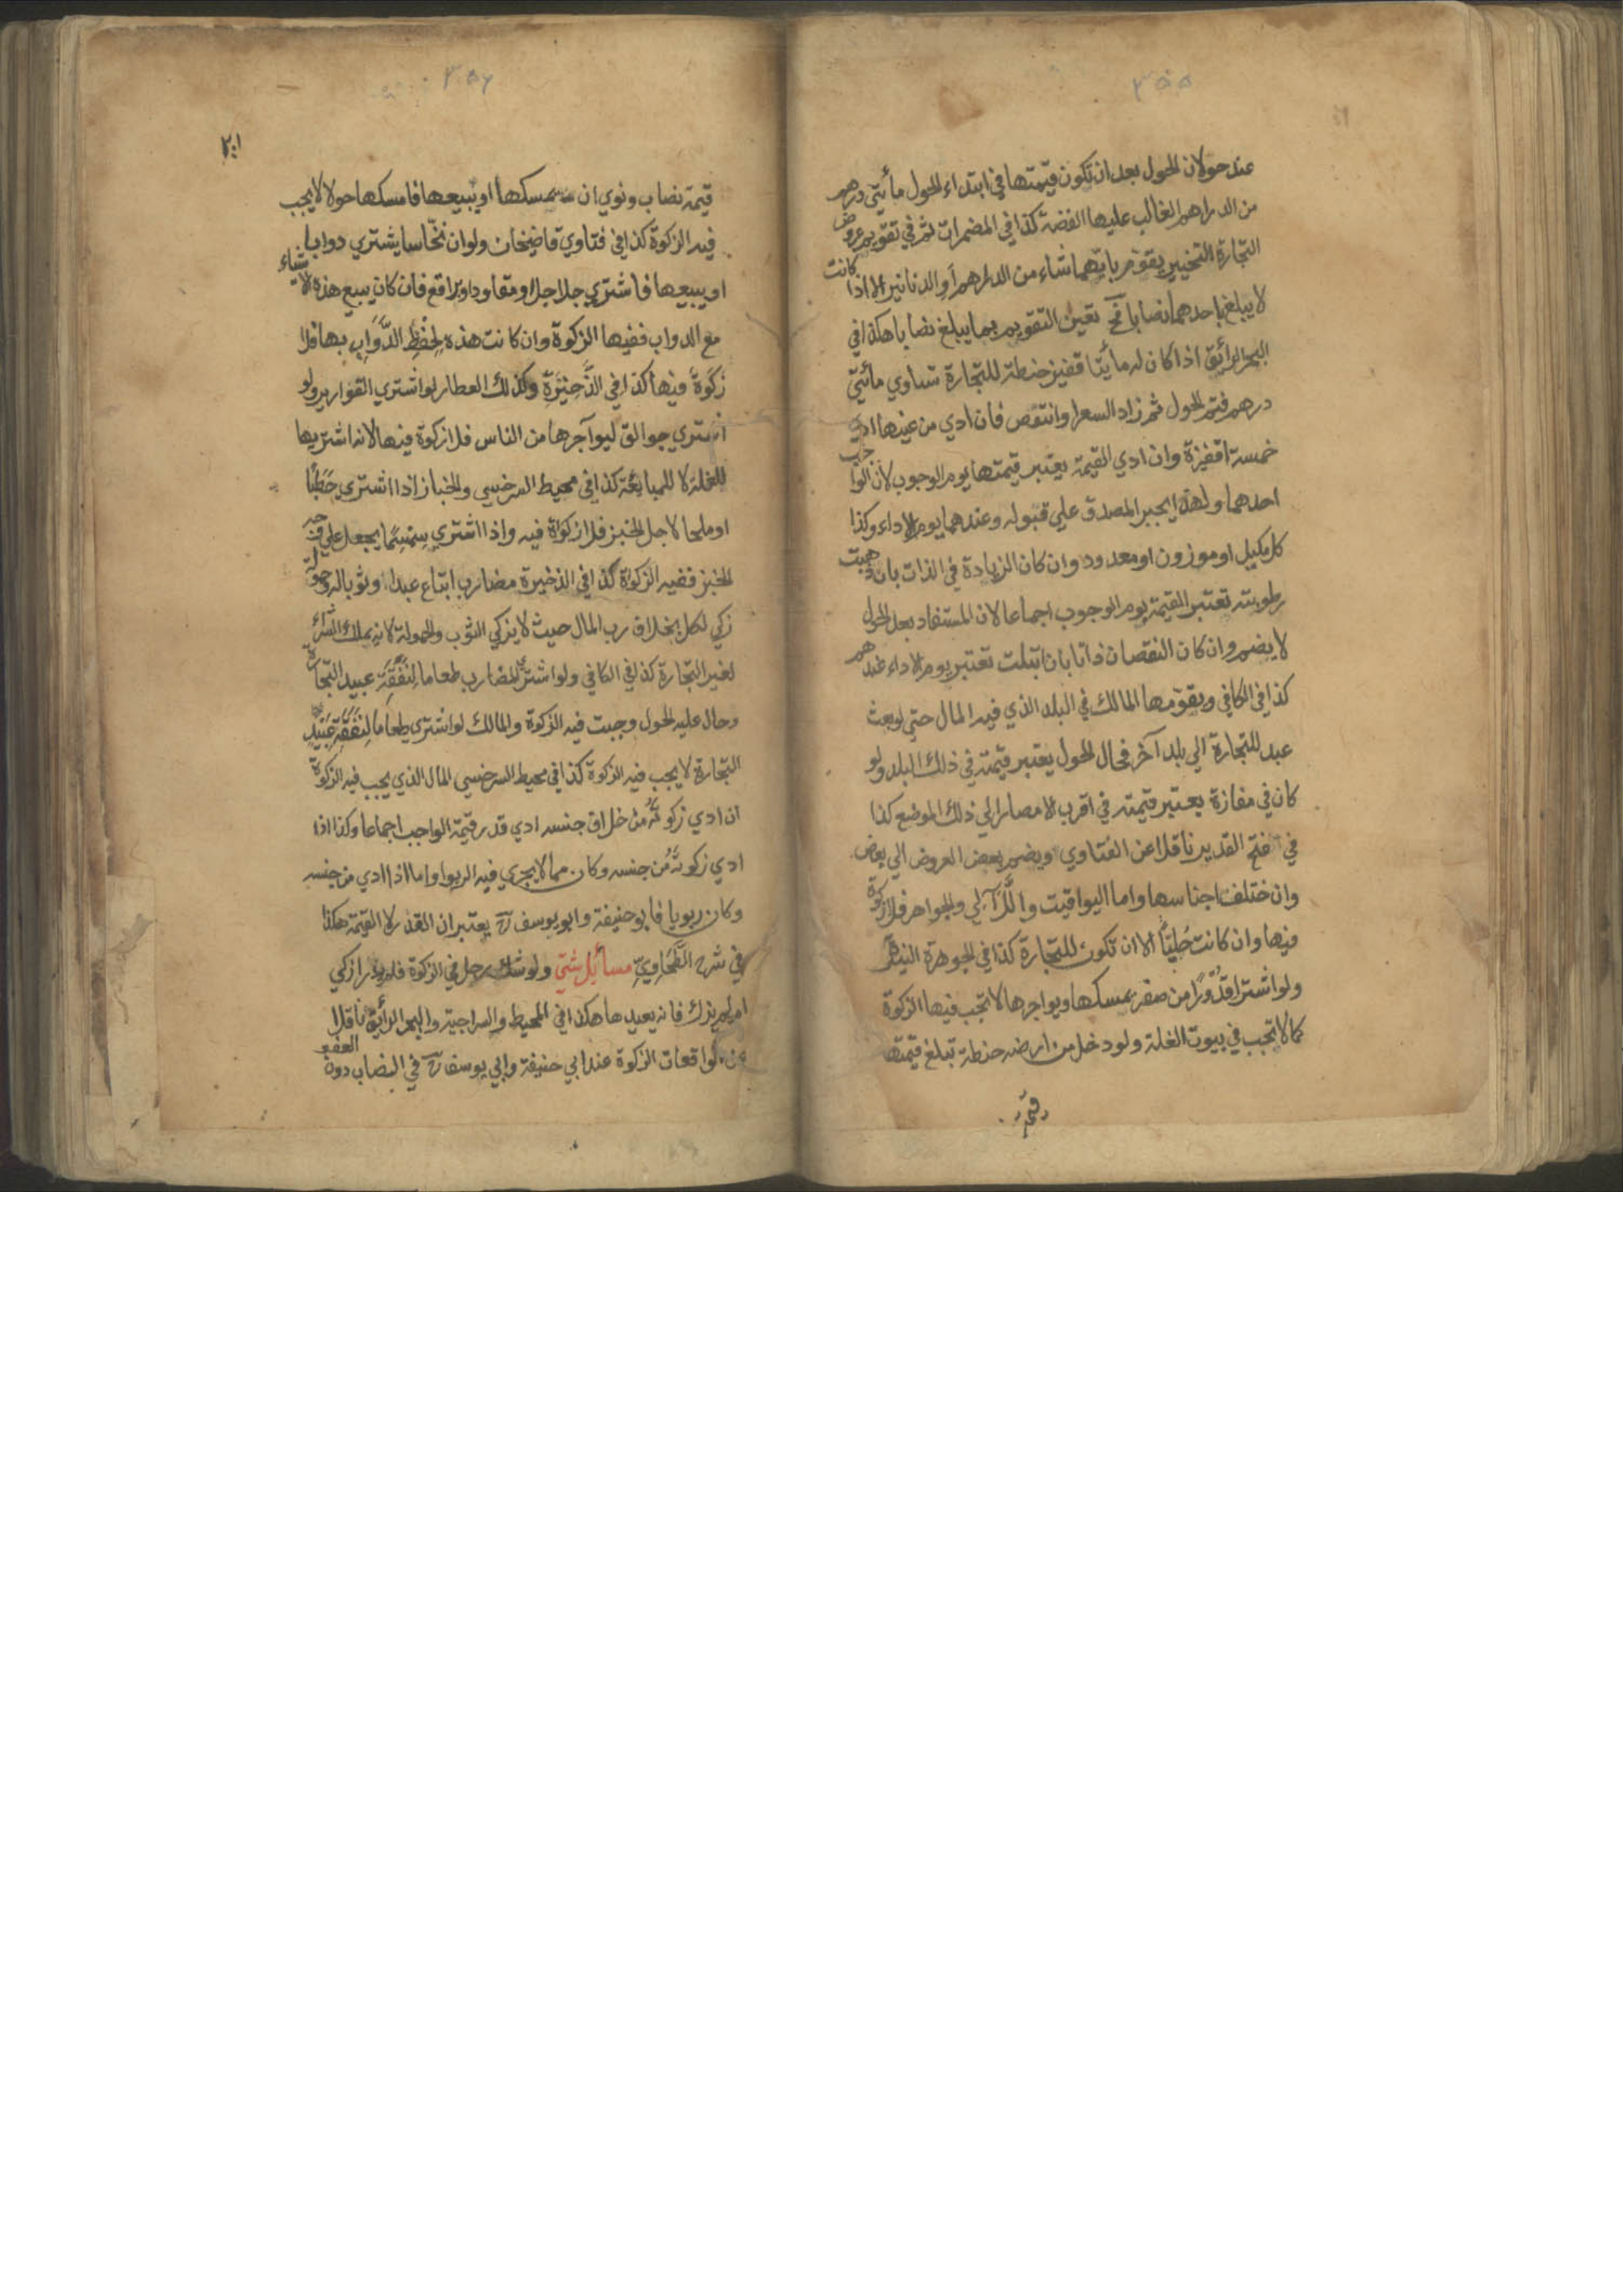 ٣٥٥
عند حولان الحول بعد ان تكون قيمتها في ابتداء الحول مأيتي درهم
من الدراهم الغالب عليها الفضة كذا في المضمرات ثم في تقويم عروض
التجارة التخيير يقوم بايهما شاء من الدراهم او الدنانير الا اذا كانت
لا يبلغ باحدهما نصابا فح تعين التقويم بما يبلغ نصابا هكذا في
البحر الرائق اذا كان له مايتا قفيز حنطة للتجارة تساوي مأيتي
درهم فتم الحول ثم زاد السعر او انتقص فان ادي من عينها ادي
خمسة اقفيزة وان ادي القيمة يعتبر قيمتها يوم الوجوب لان الواجب
احدهما ولهذا يجبر المصدق علي قبوله وعندهما يوم الاداء وكذا
كل مكيل او موزون او معدود وان كان الزيادة في الذات بان ذهبت
رطوبته تعتبر القيمة يوم الوجوب اجماعا لان المستفاد بعد الحول
لا يضم وان كان النقصان ذاتا بان ابتلت تعتبر يوم الاداء عندهم
كذا في الكافي ويقومها المالك في البلد الذي فيه المال حتي لو بعث
عبد للتجارة الي بلد آخر فحال الحول يعتبر قيمته في ذلك البلد ولو
كان في مفازة يعتبر قيمته في اقرب الامصار الي ذلك الموضع كذا
في فتح القدير ناقلا عن الفتاوي ويضم بعض العروض الي بعض
وان ختلف اجناسها واما اليواقيت واللآلي والجواهر فلا زكوة
فيها وان كانت حُلِيّاً الا ان تكون للتجارة كذا في الجوهرة النيرة
ولو اشترا قُدُوْرًا من صفر يمسكها ويواجرها لا تجب فيها الزكوة
كما لا تجب في بيوت الغلة ولو دخل من ارضه حنطة تبلغ قيمتها
قيمة
٣٥٦
٢٠١
قيمة نصاب ونوي ان يمسكها او يبيعها فامسكها حولا لا يجب
فيه الزكوة كذا في فتاوي قاضيخان ولو ان نخّاسا يشتري دوابا
او يبيعها فاشتري جلاجلا او مقاود او براقع فان كان يبيع هذه الاشياء
مع الدواب ففيها الزكوة وان كانت هذه لِحْفظِ الدَّوَابِ بها فلا
زكوةً فيها كذا في الذَّخِيْرَةِ وكذلك العطار لو اشتري القوارير ولو
اشتري جوالق ليوآجرها من الناس فلا زكوة فيها لانه اشتريها
للغلة لا للمبايعة كذا في محيط السرخسي والخباز اذا اشتري حَطَبًا
او ملحا لاجل الخبز فلا زكوة فيه واذا اشتري سِمْسِمًا يجعل علي وجه
الخبز ففيه الزكوة كذا في الذخيرة مضارب ابتاع عبدا وثوبا له وحمولة
زكي لكل بخلاف رب المال حيث لا يزكي الثوب والحمولة لانه يملك الشراء
لغير التجارة كذا في الكافي ولو اشتري المضارب طعاما لِنَفَقَةِ عبيد التجارة
وحال عليه الحول وجبت فيه الزكوة والمالك لو اشتري طعاما لِنَفَقَةِ عَبِيْدِ
التجارة لا يجب فيه الزكوة كذا في محيط السرخسي المال الذي يجب فيه الزكوة
ان ادي زكوتَهُ من خلاف جنسه ادي قدر قيمة الواجب اجماعا وكذا اذا
ادي زكوتَهُ من جنسه وكان مما لا يجري فيه الربوا واما اذا ادي من جنسه
وكان ربويا فابو حنيفة وابو يوسف رح يعتبران القدر لا القيمة هكذا
في شرح الطَّحَاوِيّ مسأيل شتي ولو شك رجل في الزكوة فلم يدر ازكي
ام لم يزك فانه يعيدها هكذا في المحيط والسراجية والبحر الرأيق ناقلا
عن الواقعات الزكوة عند ابي حنيفة وابي يوسف رح في النصاب دون العفو